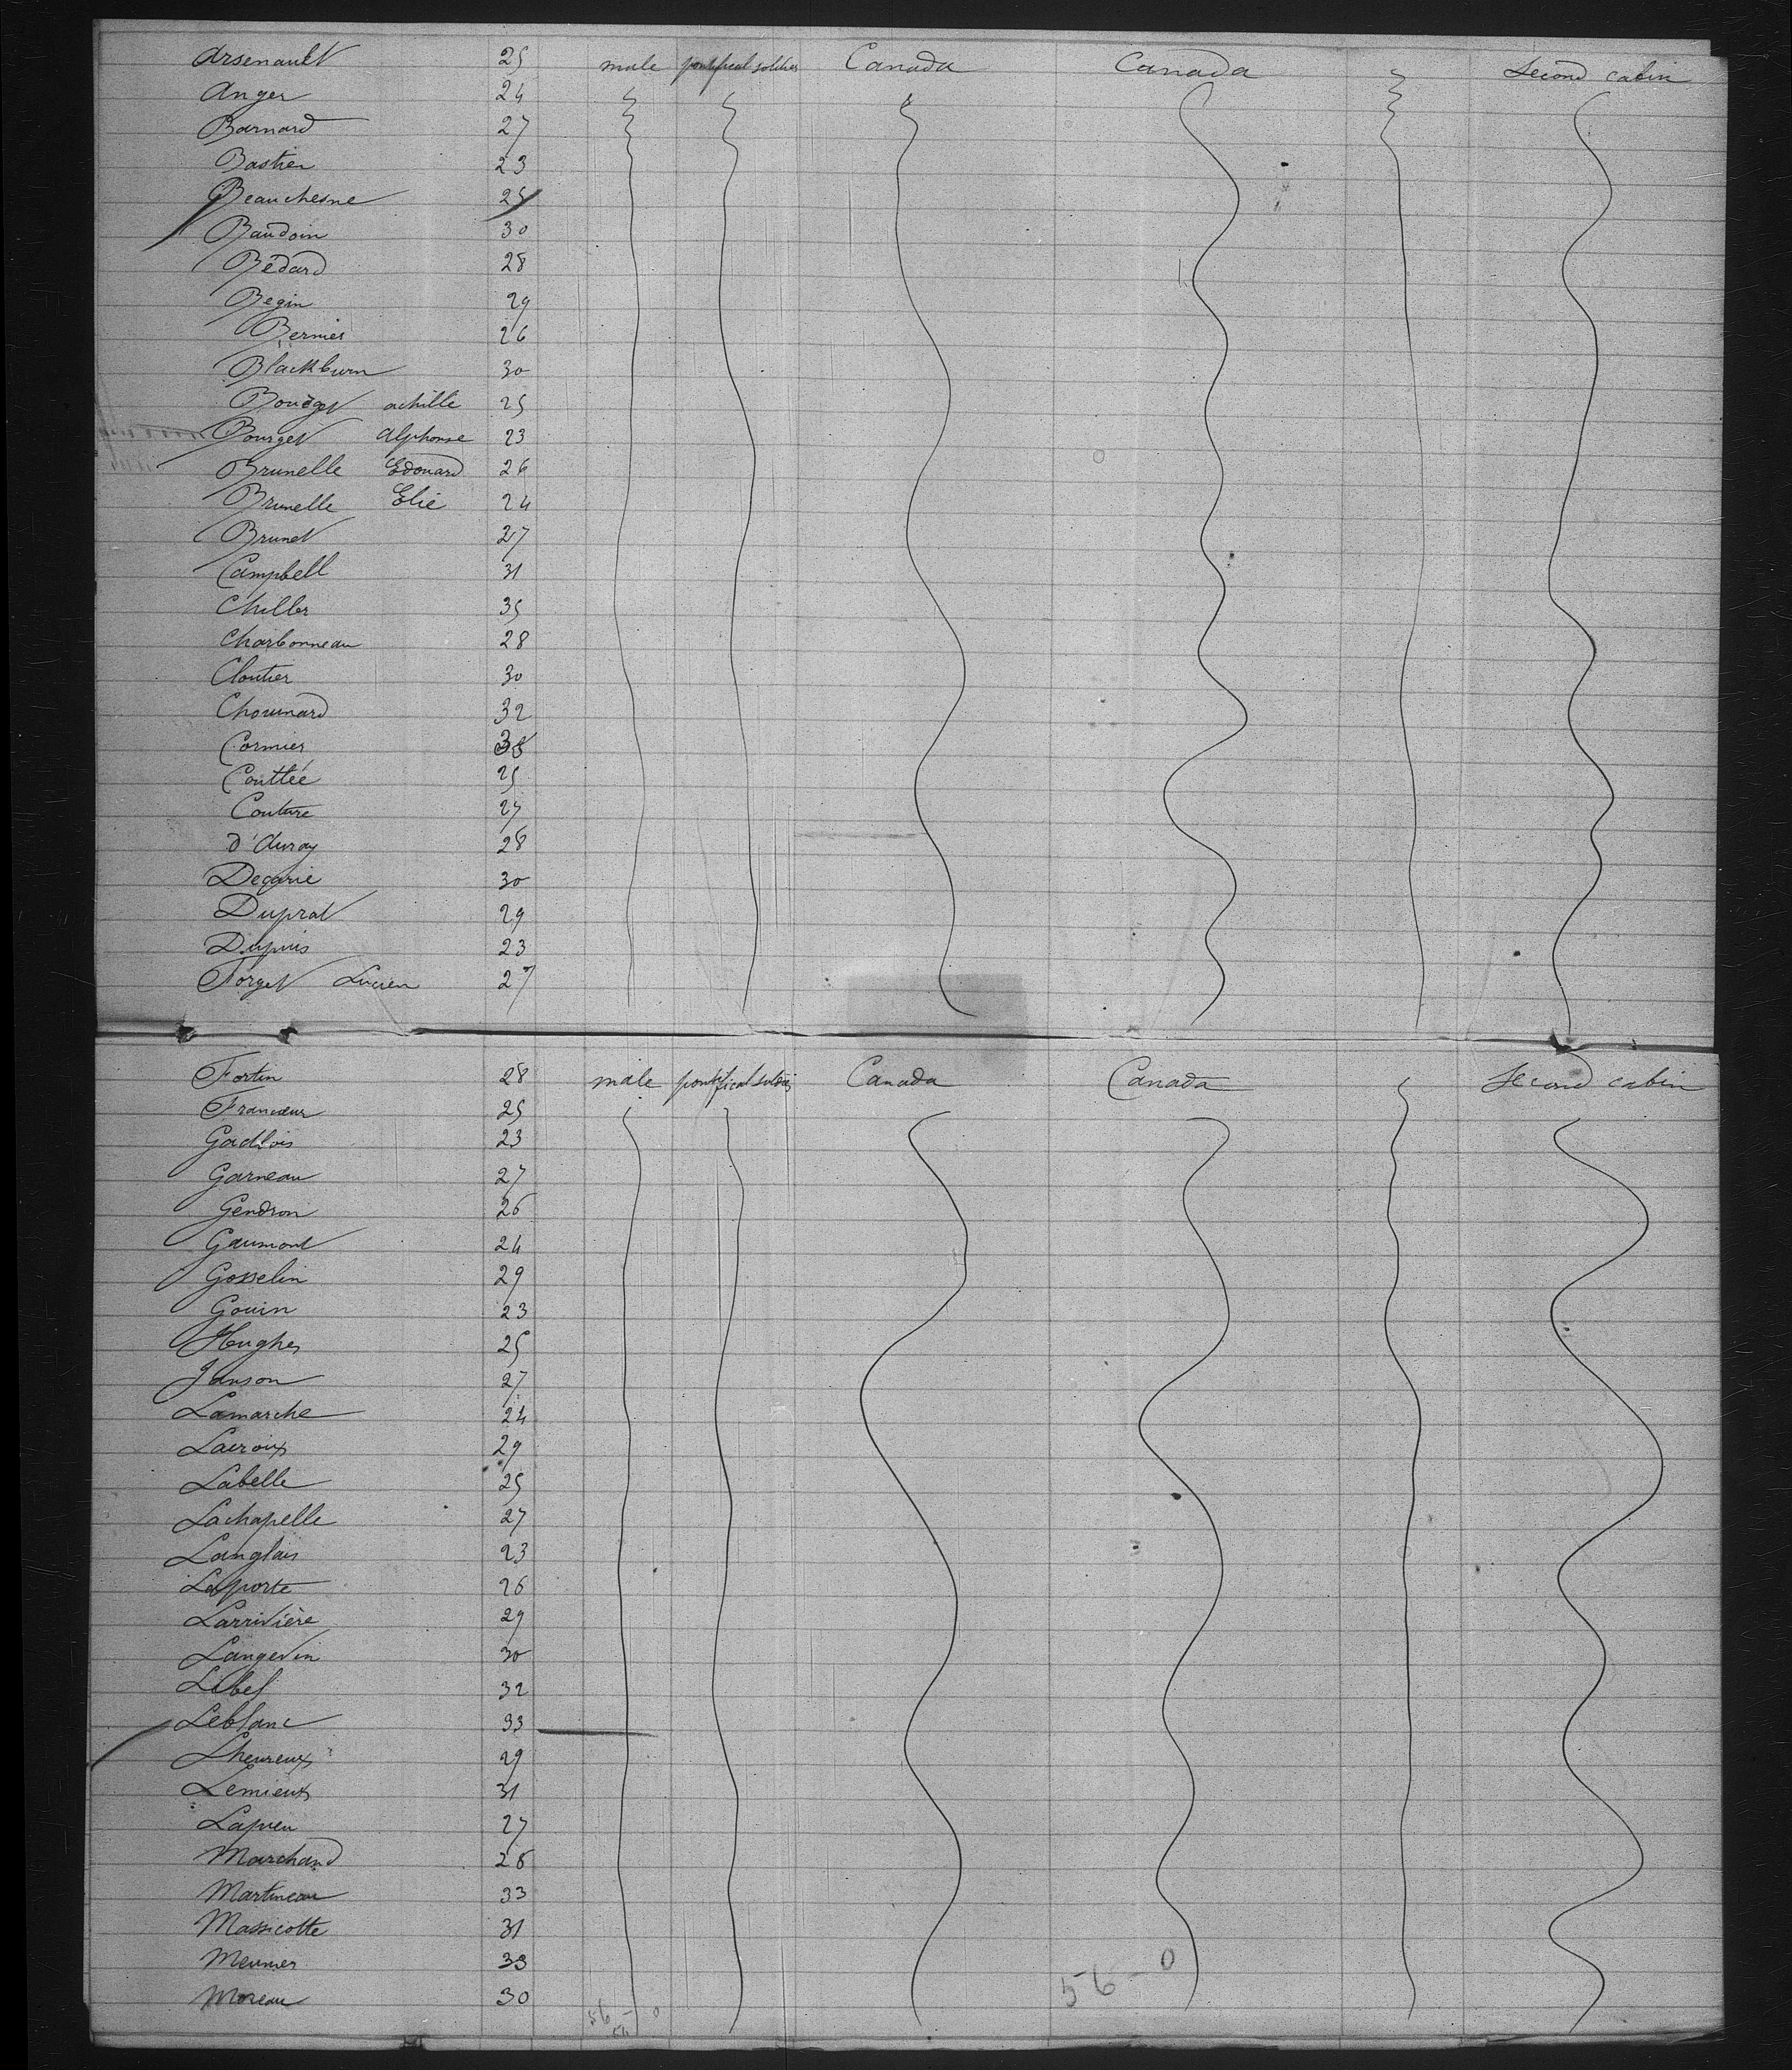 Arsenault 25 male pontifical soldier Canada Canada second cabin
Anger 24
Barnard 27
Bastien 23
Beauchesne 25
Baudoin 30
Bédard 28
Begin 29
Bernier 26
Blackburn 30
Bourget achille 25
Bourget Alphonse 23
Brunelle Edouard 26
Brunelle Elie 24
Brunet 27
Campbell 31
Chiller 35
Charbonneau 28
Cloutier 30
Chouinard 32
Cormier
Couttée 25
Couture 27
d'Auray 28
Decarie 30
Duprat 29
Dupuis 23
Forget Lucien 27
Fortin 28 male pontifical Canada Canada second cabin
Francœur 25
Gadbois 23
Garneau 27
Gendron 26
Gaumont 24
Gosselin 29
Gouin 23
Hughes 25
Janson 27
Lamarche 24
Lacroix 29
Labelle 25
Lachapelle 27
Langlais 23
Laporte 26
Larrivière 29
Langevin 30
Lebel 32
Leblanc 33
Lheureux 29
Lemieux 31
27
Marchand 28
Martineau 33
Massicotte 31
Meunier 33
Moreau 30
56-0
56-0